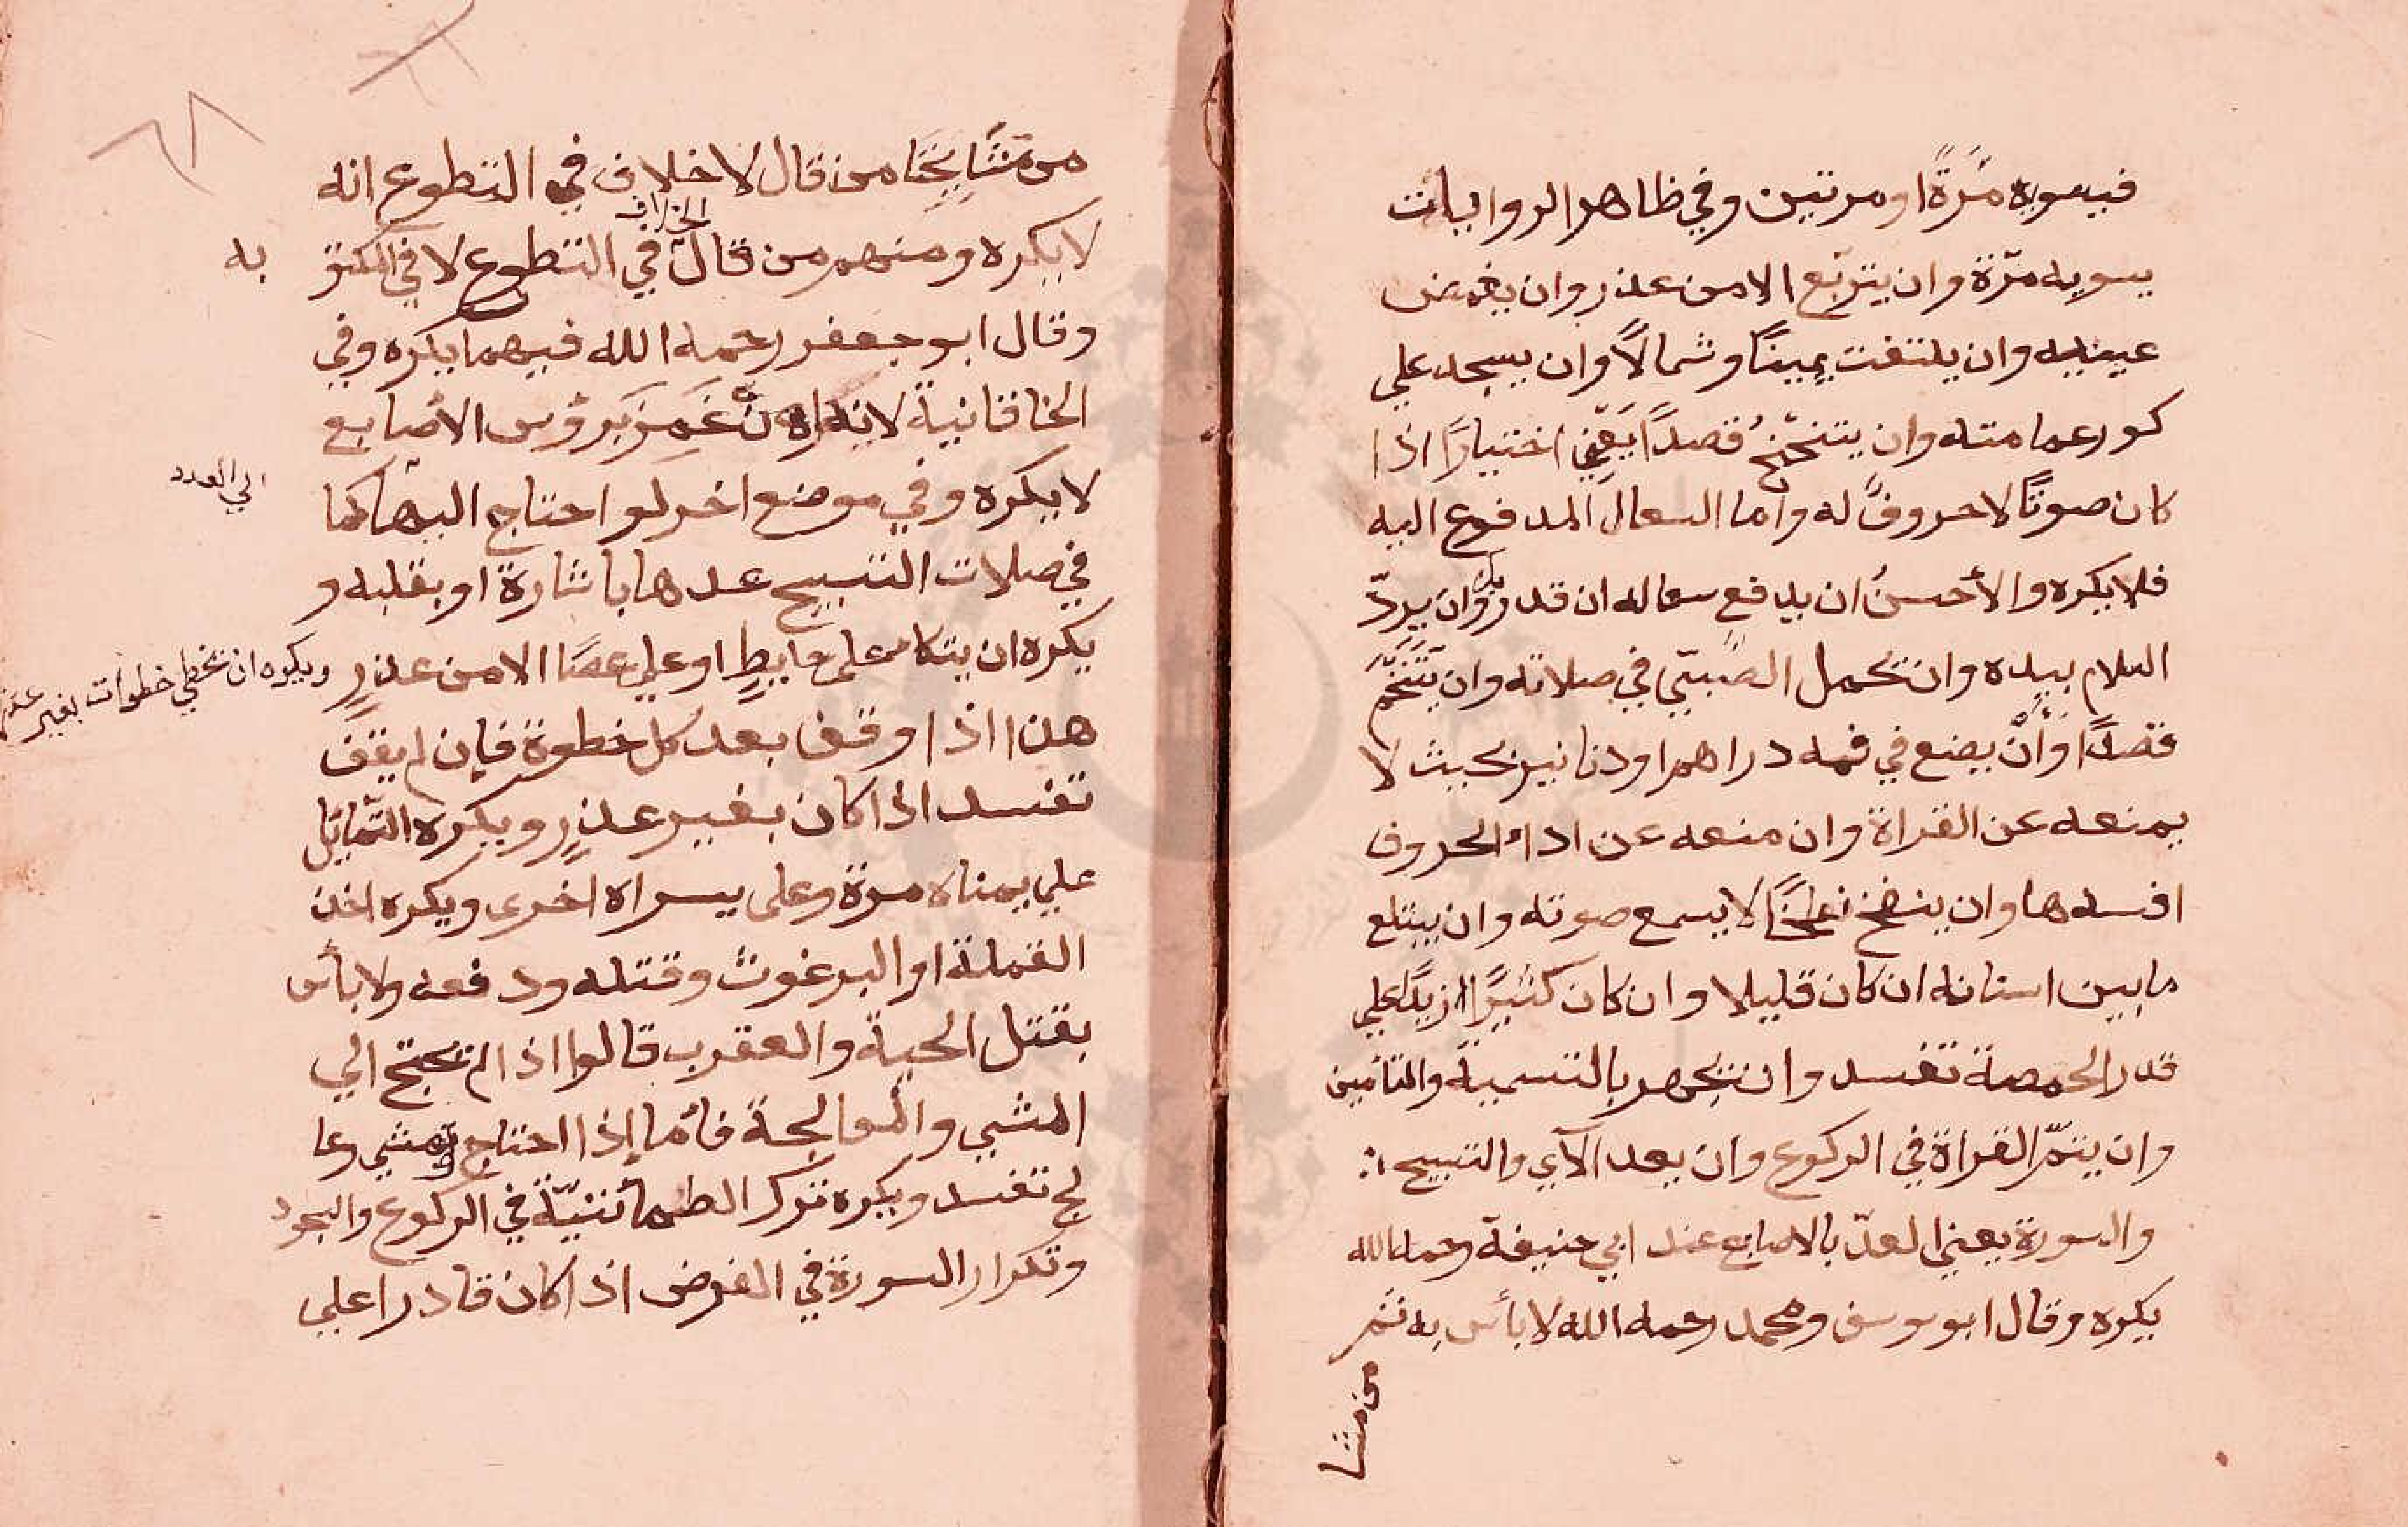 فيسويه مَرَّةً او مرتين وفي ظاهر الروايات
يسويه مرّة وان يتربّع الا من عذر وان يغمض
عينيه وان يلتفت يمينًا وشمالاً وان يسجد علي
كور عمامته وان يتنحنح قصدًا يَعْنِي اختيارًا اذا
كان صوتًا لا حروفً له واما السعال المدفوع اليه
فلا يكره والأحسنُ ان يدفع سعاله ان قدر وان يردّ
السلام بيده وان يحمل الصَّبيّ في صلاته وان يَتَنَخَّمَ
قصدًا وَأَنْ يضع في فمه دراهم او دنانير بحيث لا
يمنعه عن القراة وان منعه عن اداء الحروف
افسدها وان ينفخ نفخًا لا يسمع صوته وان يبتلع
ما بين اسنانه ان كان قليلا وان كان كثيرًا زايدًا علي
قدر الحمصة تفسد وان يجهر بالتسمية والتأمين
وان يتمّ القراة في الركوع وان يعد الآي والتسبيح
والسورة يعني العدّ بالاصابع عند ابي حنيفة رحمه الله
يكره وقال ابو يوسف ومحمد رحمه الله لا بأس به ثم
من مشا
من مَشَايِخِنَا من قال لا خلاف في التطوع انه
لا يكره ومنهم من قال الخلاف في التطوع لا في المكتو
به
وقال ابو جعفر رحمه الله فيهما يكره وفي
الخاقانية لانه ان غَمَزَ برؤس الأصابع
لا يكره وفي موضع اخر لو احتاج اليها كما
الي العدد
في صلات التسبيح عدها باشارة او بقلبه و
يكره ان يتكاء على حايطٍ او علي عصًا الا من عذرٍ
ويكره ان يخطي خطوات بغير عذر
هذا اذا وقف بعد كل خطوة فإن لم يقف
تفسد اذا كان بغير عذرٍ ويكره التّمايل
علي يمناه مرة وعلى يسراه اخرى ويكره اخذ
القملة او البرغوث وقتله ودفعه ولا بأس
بقتل الحية والعقرب قالوا اذا لم يحتج الي
المشي والمعالجة فأما إذا احتاج ومشي وعا
لج تفسد ويكره ترك الطمأنينّة في الركوع والسجود
وتكرار السورة في الفرض اذا كان قادرا علي